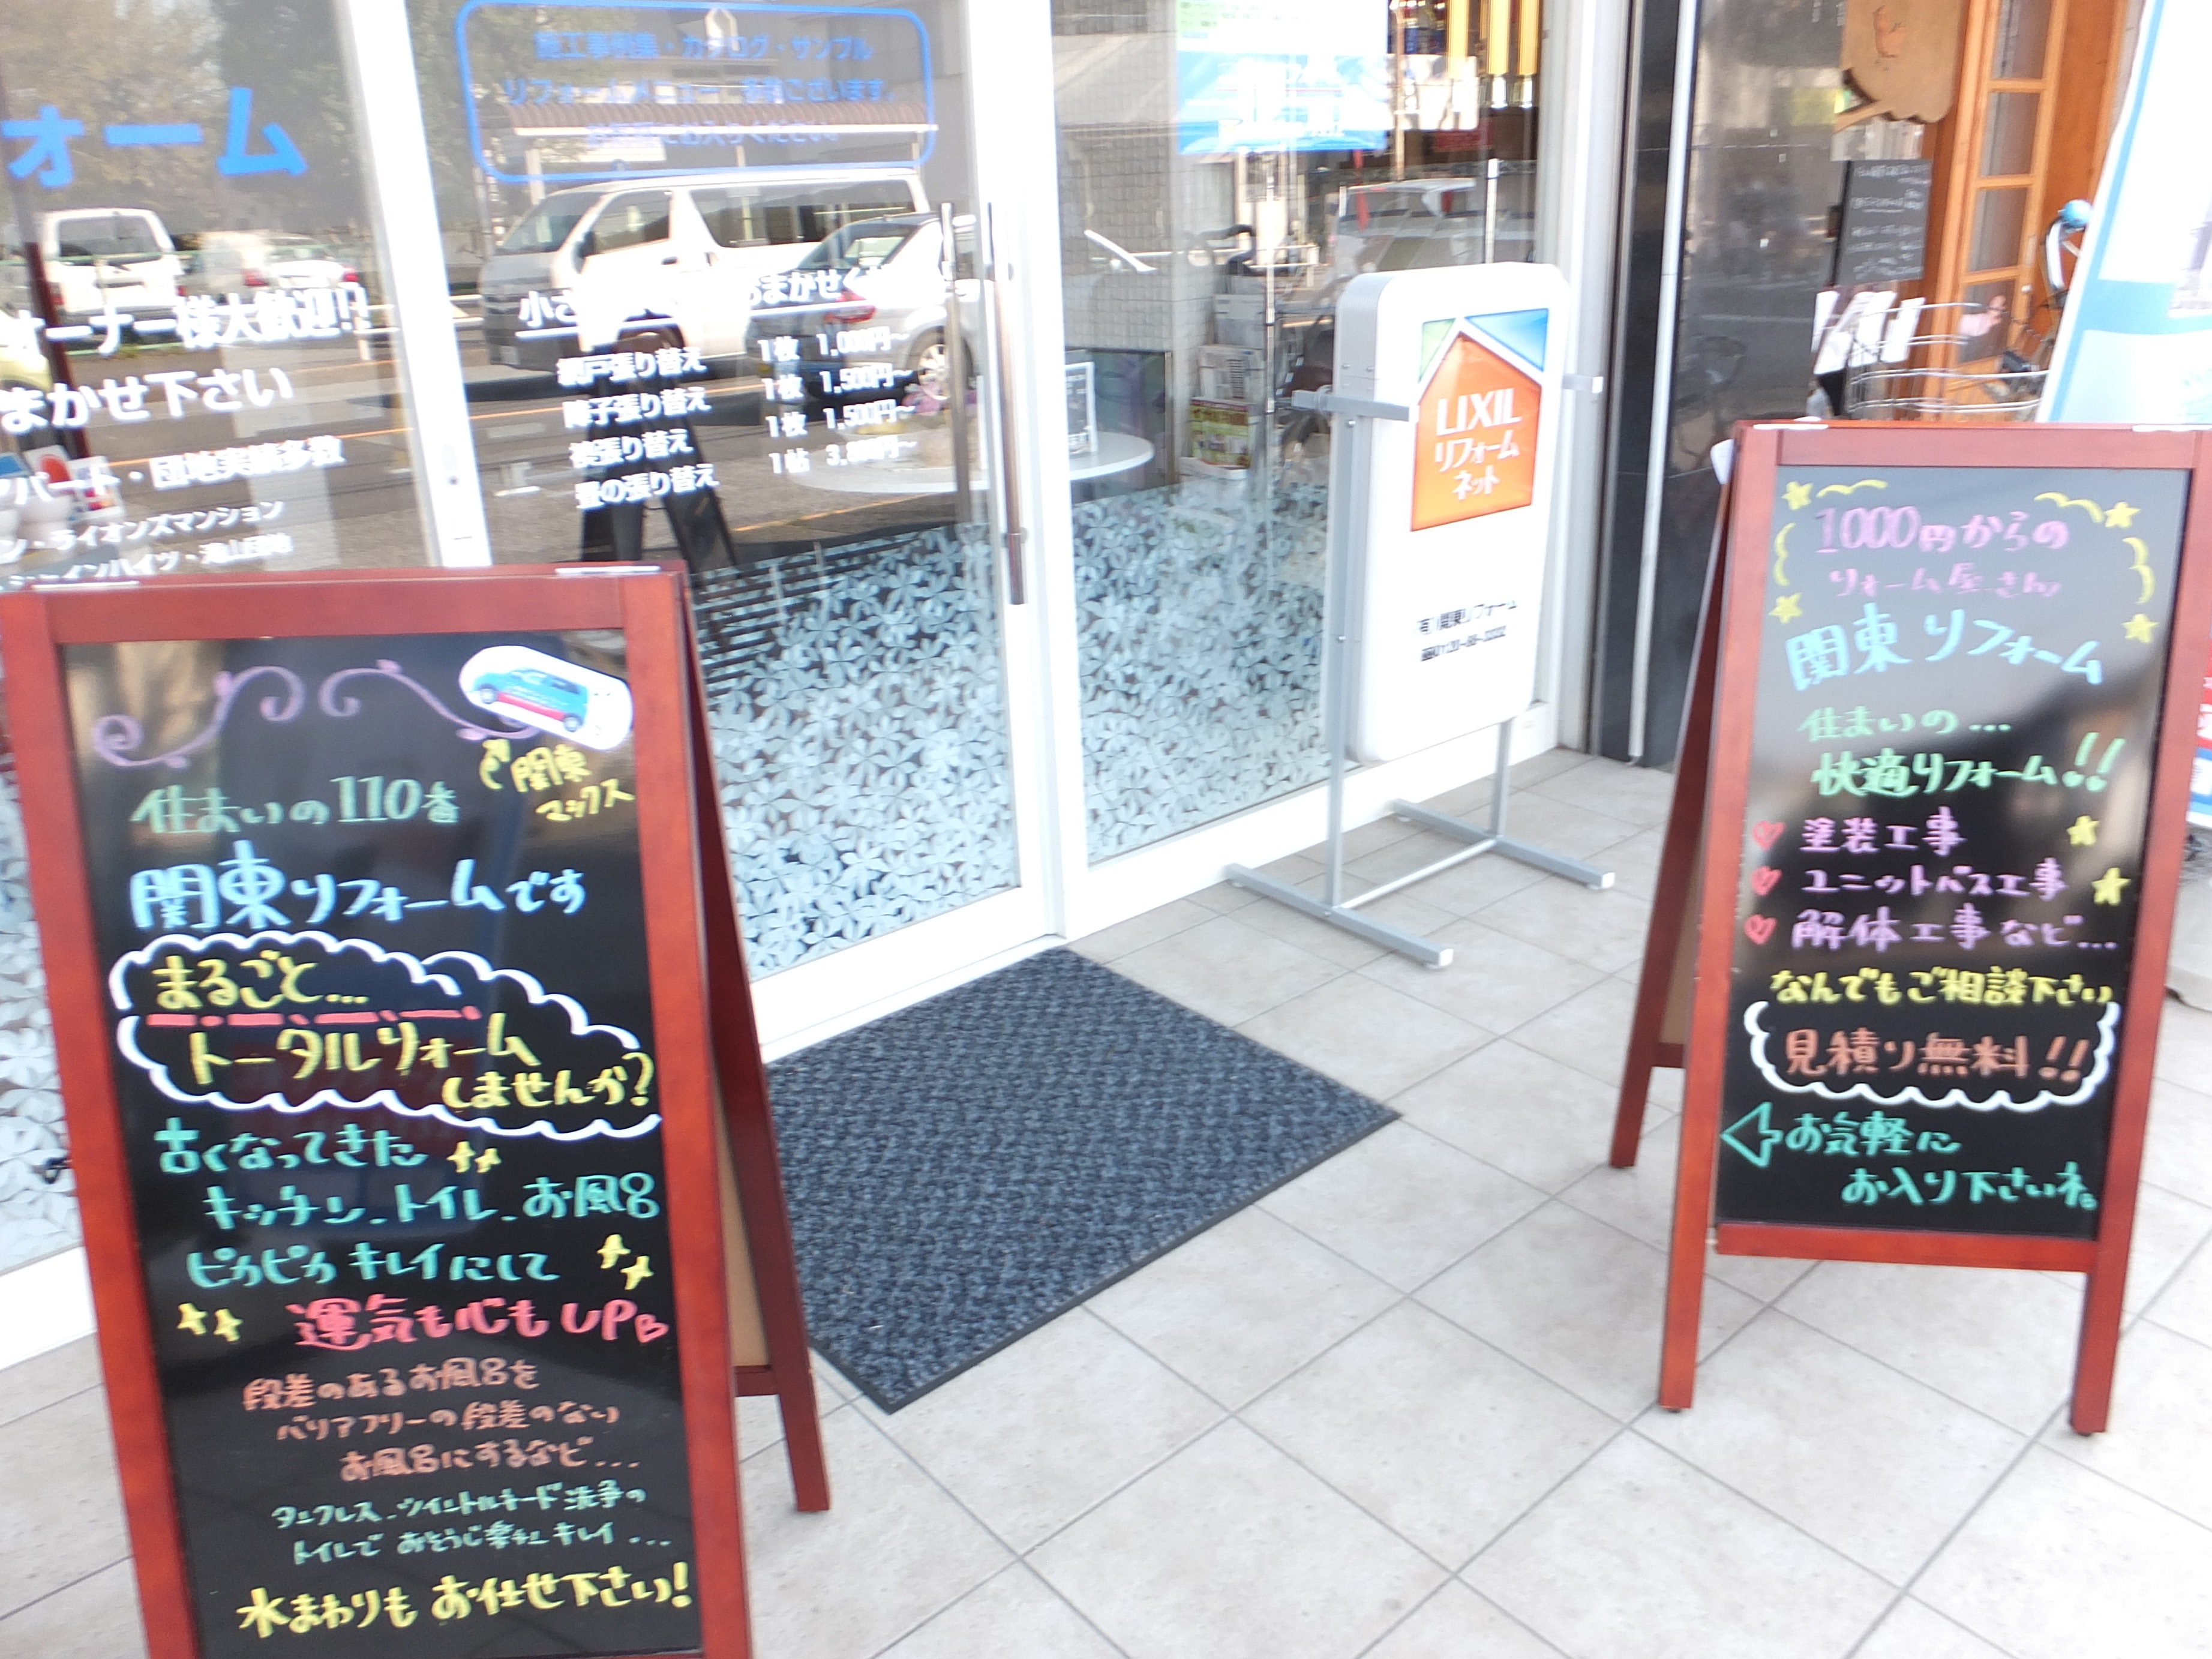 ォーム
施工事例集・カタログ・サンプル
リフォームメニュー
オーナー様大歓迎!!
まかせ下さい
アパート・団地実績多数
ン・ライオンズマンション
網戸張り替え 1枚 1,000円〜
障子張り替え 1枚 1,500円〜
襖張り替え 1枚 1,500円〜
畳の張り替え 1帖
LIXIL
リフォーム
ネット
関東リフォーム
関東
マックス
住まいの110番
関東リフォームです
まるごと...
トータルリォーム
しませんか?
古くなってきた
キッチン、トイレ、お風呂
ピカピカ キレイにして
運気も心もUP
段差のあるお風呂を
バリアフリーの段差のない
お風呂にするなど...
タンクレス、ウイントルネード洗浄の
トイレで おそうじ楽チン キレイ...
水まわりも お任せ下さい!
1000円からの
リォーム屋さん
関東リフォーム
住まいの...
快適リフォーム!!
塗装工事
ユニットバス工事
解体工事など...
なんでもご相談下さい
見積り無料!!
お気軽に
お入り下さいね。